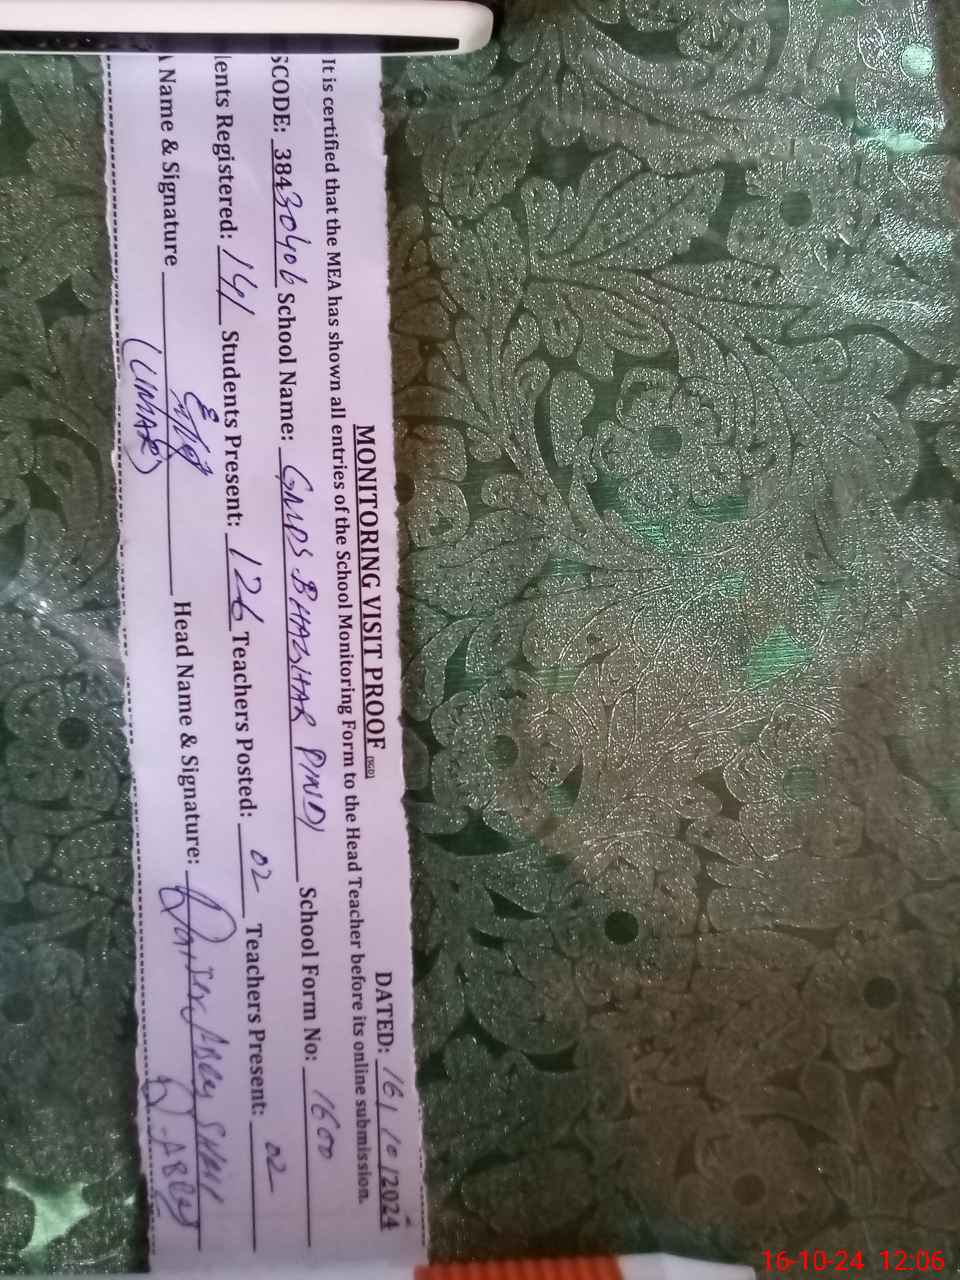 MONITORING VISIT PROOF
DATED: 16/10/2024
It is certified that the MEA has shown all entries of the School Monitoring Form to the Head Teacher before its online submission.
SCODE: 38430406 School Name: GMPS BHAGHAR PINDI School Form No: 1600
lents Registered: 141 Students Present: 126 Teachers Posted: 02 Teachers Present: 02
Name & Signature (UMAR) Head Name & Signature:
16-10-24 12:06